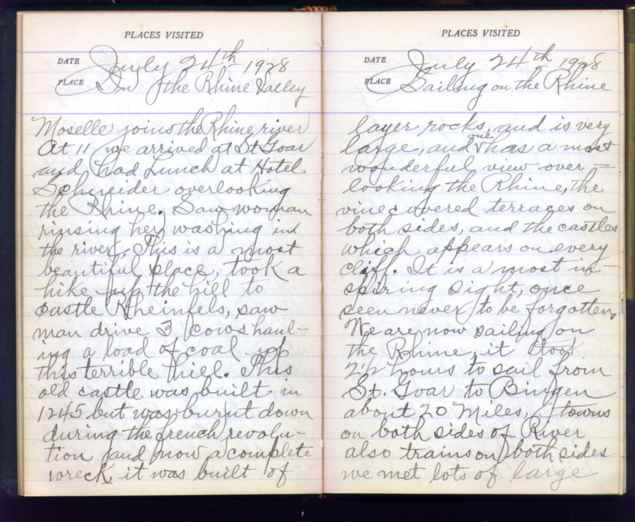 PLACES VISITED
DATE July 24th 1928
PLACE In the Rhine Valley
Moselle joins the Rhine river
At 11 we arrived at St Goar
and had Lunch at Hotel
Schneider overlooking
the Rhine. Saw woman
rinsing her washing in
the river. This is a most
beautiful place, took a
hike up the hill to
Castle Rheinfels, saw
man drive 3 cows haul-
ing a load of coal up
this terrible hill. This
old castle was built in
1245 but was burnt down
during the french revolu-
tion and now a complete
wreck, it was built of
PLACES VISITED
DATE July 24th 1928
PLACE Sailing on the Rhine
layer rocks, and is very
large, and one has a most
wonderful view over-
looking the Rhine, the
vine covered terraces on
both sides, and the castles
which appears on every
cliff. It is a most in-
spiring sight, once
seen never to be forgotten,
We are now sailing on
the Rhine, it took
2½ hours to sail from
St. Goar to Bingen
about 20 Miles, towns
on both sides of River
also trains on both sides
we met lots of large